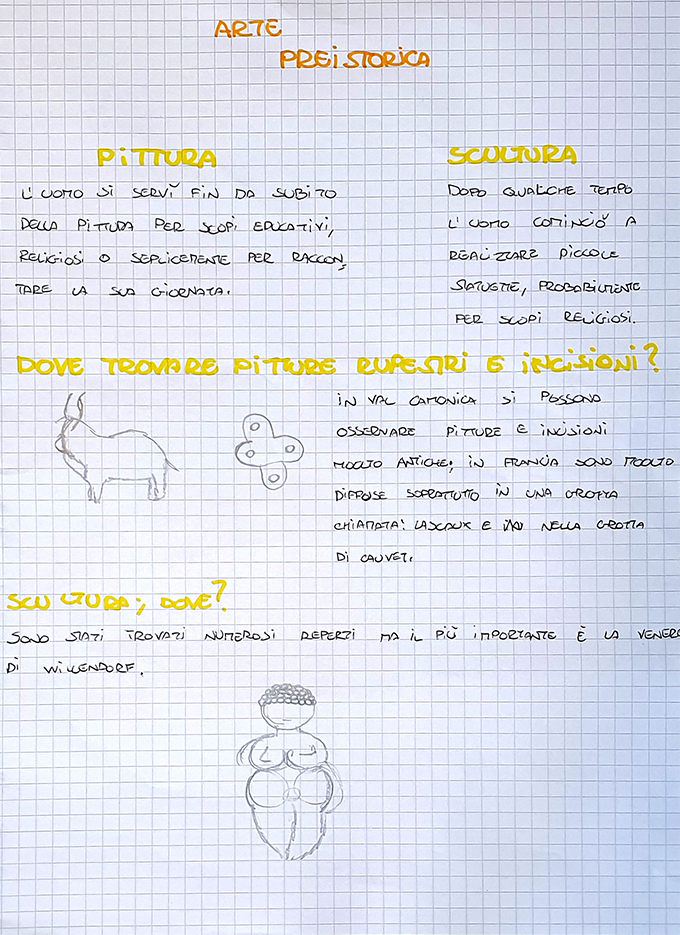 ARTE
PREISTORICA
PITTURA
L'UOMO SI SERVÌ FIN DA SUBITO
DELLA PITTURA PER SCOPI EDUCATIVI,
RELIGIOSI O SEPLICEMENTE PER RACCON,
TARE LA SUA GIORNATA.
SCULTURA
DOPO QUALCHE TEMPO
L'UOMO COMINCIÒ A
REALIZZARE PICCOLE
STATUETTE, PROBABILMENTE
PER SCOPI RELIGIOSI.
DOVE TROVARE PITTURE RUPESTRI E INCISIONI?
IN VAL CAMONICA SI POSSONO
OSSERVARE PITTURE E INCISIONI
MOLTO ANTICHE; IN FRANCIA SONO MOLTO
DIFFUSE SOPRATTUTTO IN UNA GROTTA
CHIAMATA: LASCAUX E NELLA GROTTA
DI CAUVET.
SCULTURA; DOVE?
SONO STATI TROVATI NUMEROSI REPERTI MA IL PIÙ IMPORTANTE È LA VENERE
DI WILLENDORF.